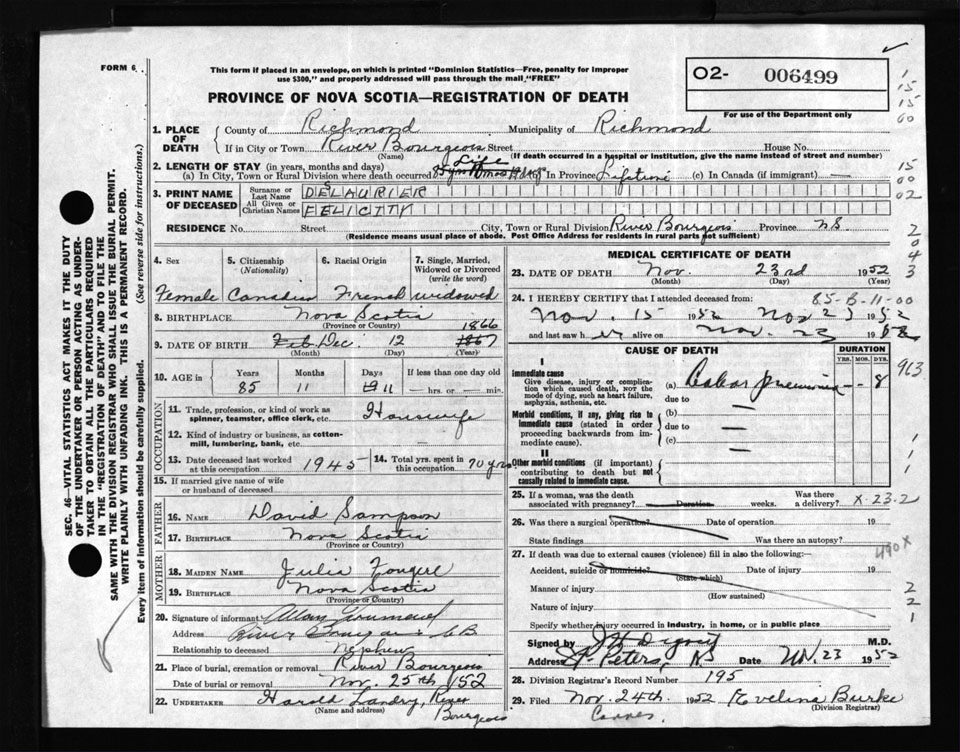 FORM 6.
This form if placed in an envelope, on which is printed "Dominion Statistics—Free, penalty for improper
use $300," and properly addressed will pass through the mail "FREE"
O2- 006499
For use of the Department only
PROVINCE OF NOVA SCOTIA—REGISTRATION OF DEATH
1. PLACE OF DEATH
County of Richmond Municipality of Richmond
If in City or Town River Bourgeois Street House No.
(Name) (If death occurred in a hospital or institution, give the name instead of street and number)
2. LENGTH OF STAY (in years, months and days) Life
(a) In City, Town or Rural Division where death occurred In Province Lifetime (c) In Canada (if immigrant) —
3. PRINT NAME OF DECEASED
Surname or Last Name DESLAURIER
All Given or Christian Names FELICITY
RESIDENCE No. Street City, Town or Rural Division River Bourgeois Province N.S.
(Residence means usual place of abode. Post Office Address for residents in rural parts not sufficient)
4. Sex 5. Citizenship (Nationality) 6. Racial Origin 7. Single, Married, Widowed or Divorced (write the word)
Female Canadian French widowed
8. BIRTHPLACE Nova Scotia
(Province or Country)
9. DATE OF BIRTH Feb Dec. 12 1867 1866
(Month) (Day) (Year)
10. AGE in Years Months Days If less than one day old
85 11 11 —hrs. or — min.
OCCUPATION
11. Trade, profession, or kind of work as spinner, teamster, office clerk, etc. Housewife
12. Kind of industry or business, as cotton-mill, lumbering, bank, etc.
13. Date deceased last worked at this occupation 1945 14. Total yrs. spent in this occupation 70 yrs
15. If married give name of wife or husband of deceased
FATHER
16. NAME David Sampson
17. BIRTHPLACE Nova Scotia
(Province or Country)
MOTHER
18. MAIDEN NAME Julia Fougere
19. BIRTHPLACE Nova Scotia
(Province or Country)
20. Signature of informant
Address River C.B.
Relationship to deceased Nephew
21. Place of burial, cremation or removal River Bourgeois
Date of burial or removal Nov. 25th 1952
22. UNDERTAKER Harold Landry, River Bourgeois
(Name and address)
MEDICAL CERTIFICATE OF DEATH
23. DATE OF DEATH Nov. 23rd 1952
(Month) (Day) (Year)
24. I HEREBY CERTIFY that I attended deceased from: 85-B-11-00
Nov. 15 1952 Nov 23 1952
and last saw her alive on Nov. 23 1952
CAUSE OF DEATH DURATION
YRS. MOS. DYS.
I
Immediate cause
Give disease, injury or complication which caused death, NOT the mode of dying, such as heart failure, asphyxia, asthenia, etc.
(a) Lobar pneumonia — — 8
due to
Morbid conditions, if any, giving rise to immediate cause (stated in order proceeding backwards from immediate cause).
(b) —
due to —
(c) —
II
Other morbid conditions (if important) contributing to death but not causally related to immediate cause.
25. If a woman, was the death associated with pregnancy? Duration weeks. Was there a delivery? X-23-2
26. Was there a surgical operation? Date of operation 19
State findings Was there an autopsy?
27. If death was due to external causes (violence) fill in also the following:—
Accident, suicide or homicide? Date of injury 19
(State which)
Manner of injury
(How sustained)
Nature of injury
Specify whether injury occurred in industry, in home, or in public place
Signed by M.D.
Address St. Peters, NS Date Nov. 23 1952
28. Division Registrar's Record Number 195
29. Filed Nov. 24th. 1952 Evelina Burke
(Division Registrar)
SEC. 46—VITAL STATISTICS ACT MAKES IT THE DUTY
OF THE UNDERTAKER OR PERSON ACTING AS UNDER-
TAKER TO OBTAIN ALL THE PARTICULARS REQUIRED
IN THE "REGISTRATION OF DEATH" AND TO FILE THE
SAME WITH THE DIVISION REGISTRAR WHO SHALL ISSUE THE BURIAL PERMIT.
WRITE PLAINLY WITH UNFADING INK. THIS IS A PERMANENT RECORD.
Every item of information should be carefully supplied. (See reverse side for instructions.)
1
15
15
60
15
00
02
2
0
4
3
963
1
1
1
490X
2
2
1